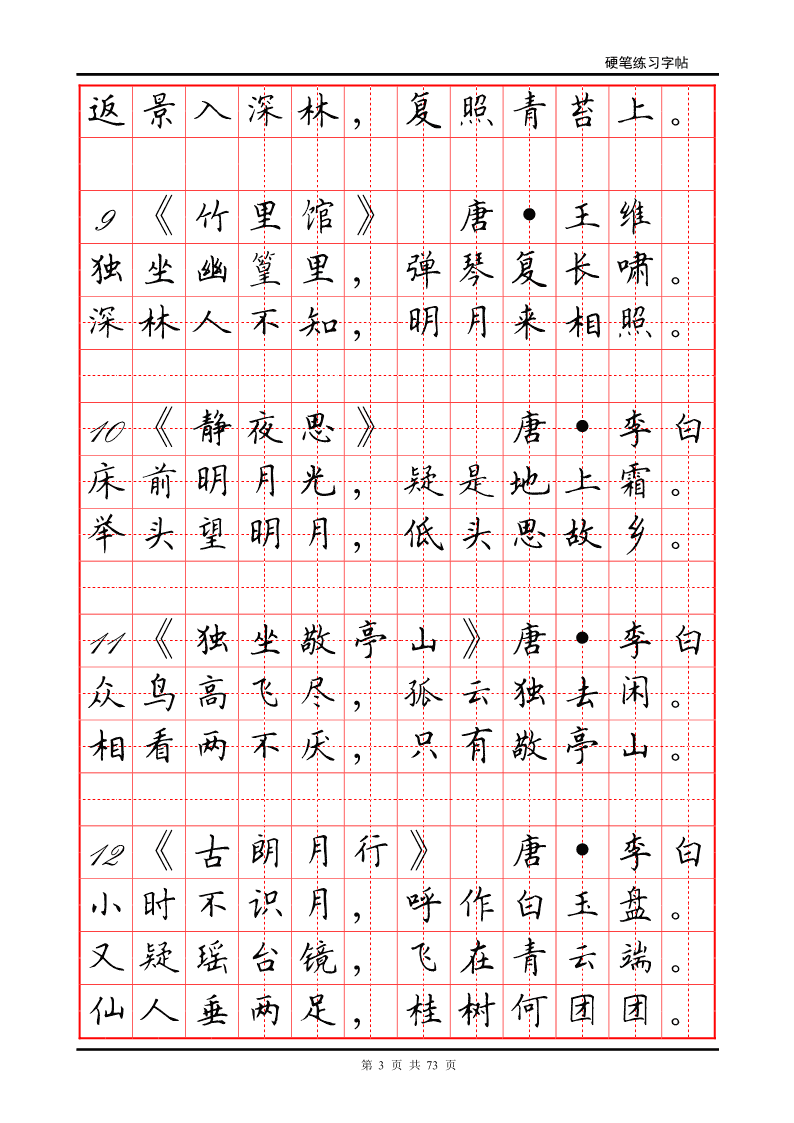 硬笔练习字帖
返景入深林，复照青苔上。
9《竹里馆》 唐•王维
独坐幽篁里，弹琴复长啸。
深林人不知，明月来相照。
10《静夜思》 唐•李白
床前明月光，疑是地上霜。
举头望明月，低头思故乡。
11《独坐敬亭山》唐•李白
众鸟高飞尽，孤云独去闲。
相看两不厌，只有敬亭山。
12《古朗月行》 唐•李白
小时不识月，呼作白玉盘。
又疑瑶台镜，飞在青云端。
仙人垂两足，桂树何团团。
第 3 页 共 73 页